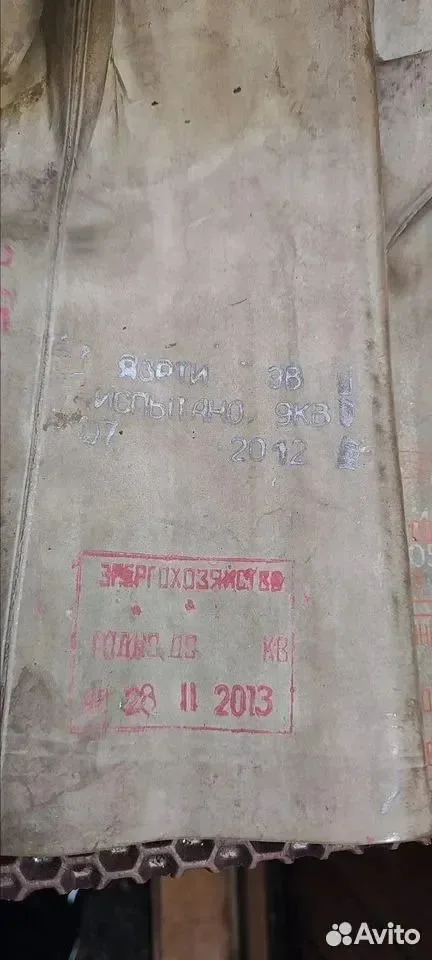 ЯЗРТИ ЭВ
ИСПЫТАНО 9КВ
07 2012
ЭНЕРГОХОЗЯЙСТВО
ГОДНО ДО КВ
28 11 2013
Avito